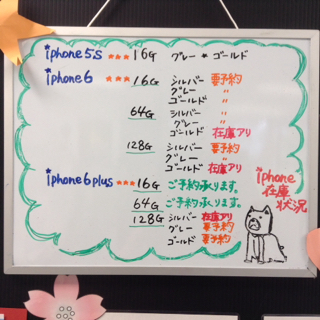 iphone5s ★★★ 16G グレー ★ ゴールド
iphone6 ★★★ 16G シルバー 要予約
グレー 〃
ゴールド 〃
64G シルバー 〃
グレー 〃
ゴールド 在庫アリ
128G シルバー 要予約
グレー 〃
ゴールド 在庫アリ
iphone6plus ★★★ 16G ご予約承ります。
64G ご予約承ります。
128G シルバー 在庫アリ
グレー 要予約
ゴールド 要予約
iphone
在庫
状況